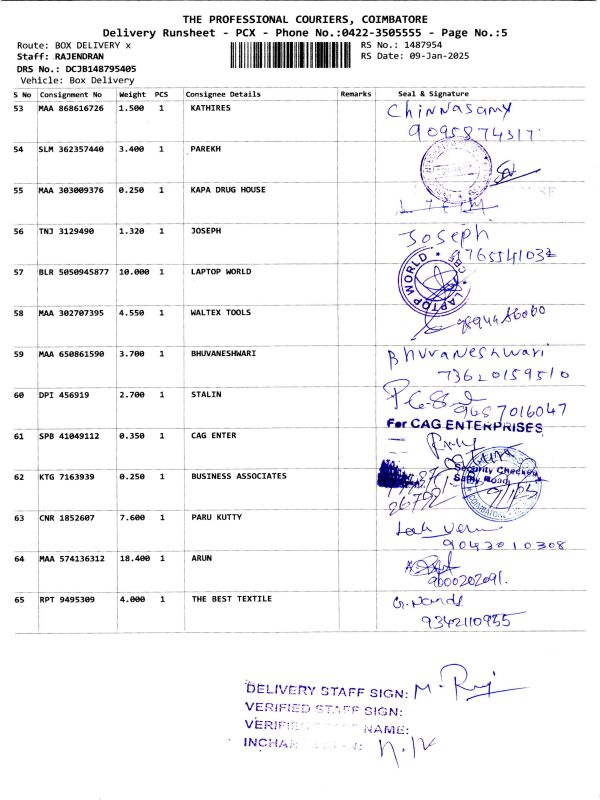 THE PROFESSIONAL COURIERS, COIMBATORE
Delivery Runsheet - PCX - Phone No.:0422-3505555 - Page No.:5
Route: BOX DELIVERY x
RS No.: 1487954
Staff: RAJENDRAN
RS Date: 09-Jan-2025
DRS No.: DCJB148795405
Vehicle: Box Delivery
S No Consignment No Weight PCS Consignee Details Remarks Seal & Signature
53 MAA 868616726 1.500 1 KATHIRES Chinnasamy
9095874317
54 SLM 362357440 3.400 1 PAREKH
55 MAA 303009376 0.250 1 KAPA DRUG HOUSE
56 TNJ 3129490 1.320 1 JOSEPH Joseph
57 BLR 5050945877 10.000 1 LAPTOP WORLD LAPTOP WORLD
58 MAA 302707395 4.550 1 WALTEX TOOLS
59 MAA 650861590 3.700 1 BHUVANESHWARI Bhuvaneshwari
73620159510
60 DPI 456919 2.700 1 STALIN
9487016047
61 SPB 41049112 0.350 1 CAG ENTER For CAG ENTERPRISES
62 KTG 7163939 0.250 1 BUSINESS ASSOCIATES Security Checked
26792
63 CNR 1852607 7.600 1 PARU KUTTY
9042010308
64 MAA 574136312 18.400 1 ARUN
9600202091.
65 RPT 9495309 4.000 1 THE BEST TEXTILE
9342110955
DELIVERY STAFF SIGN: M. Raj
VERIFIED STAFF SIGN:
VERIFIED STAFF NAME: